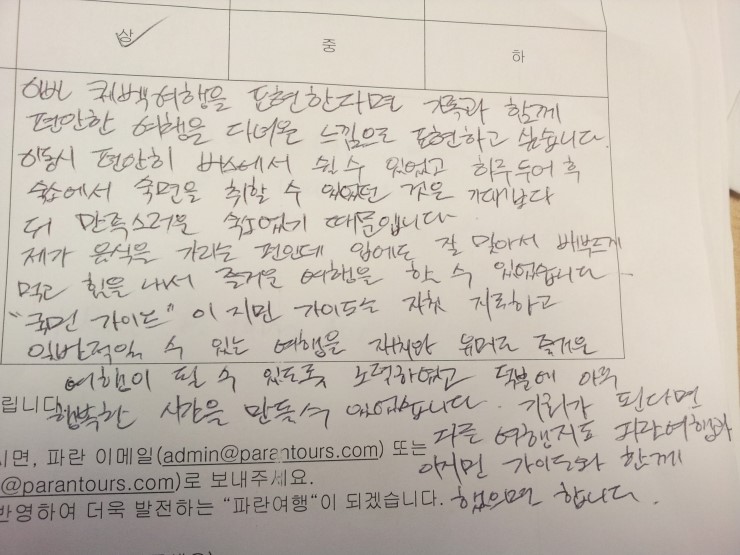 상 중 하
이번 퀘벡여행을 표현한다면 가족과 함께
편안한 여행을 다녀온 느낌으로 표현하고 싶습니다.
이동시 편안히 버스에서 쉴 수 있었고 하루 투어 후
숙소에서 숙면을 취할 수 있었던 것은 기대감보다
더 만족스러운 숙소였기 때문입니다
제가 음식을 가리는 편인데 입에도 잘 맞아서 배부르게
먹고 힘을 내서 즐거운 여행을 할 수 있었습니다
"국민 가이드" 이지민 가이드는 자칫 지루하고
일반적일 수 있는 여행을 재치와 유머로 즐거운
여행이 될 수 있도록 노력하였고 덕분에 아주
립니다. 행복한 시간을 만들 수 있었습니다. 기회가 된다면
다른 여행지도 파란여행과
시면, 파란 이메일(admin@parantours.com) 또는
이지민 가이드와 함께
@parantours.com)로 보내주세요.
했으면 합니다.
반영하여 더욱 발전하는 "파란여행"이 되겠습니다.